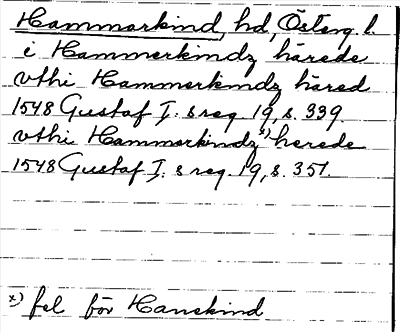 Hammarkind, hd, Österg. l.
i Hammerkindz härede
vthi Hammerkindz häred
1548 Gustaf I:s reg. 19, s. 339.
vthi Hammarkindz x) herede
1548 Gustaf I:s reg. 19, s. 351.
x) fel för Hanekind